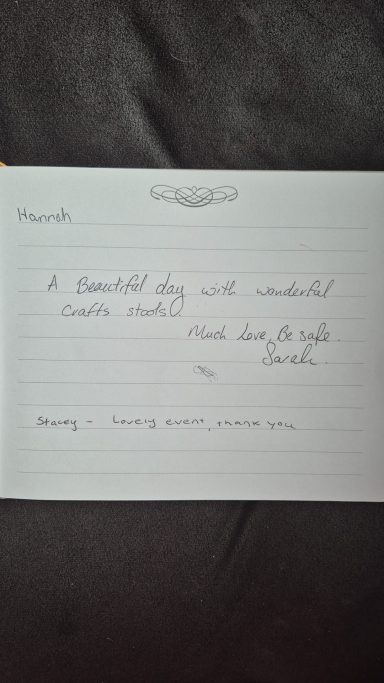 Hannah
A Beautiful day with wonderful
Crafts stools!
Much Love, Be safe.
Sarah.
Stacey - Lovely event, thank you